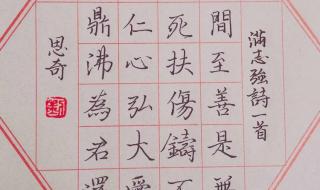 滿志強詩一首
間至善是無
死扶傷鑄不
仁心弘大愛
鼎沸為君
思奇